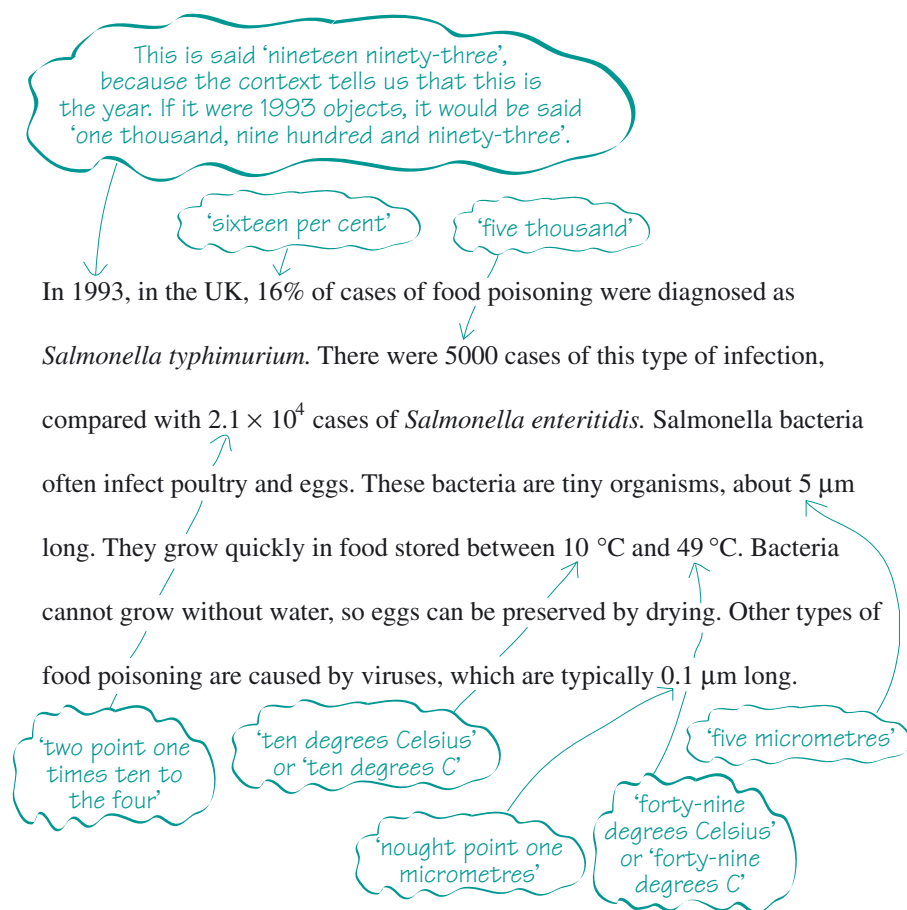 This is said ‘nineteen ninety-three’,
because the context tells us that this is
the year. If it were 1993 objects, it would be said
‘one thousand, nine hundred and ninety-three’.
‘sixteen per cent’
‘five thousand’
In 1993, in the UK, 16% of cases of food poisoning were diagnosed as
Salmonella typhimurium. There were 5000 cases of this type of infection,
compared with 2.1 × 10⁴ cases of Salmonella enteritidis. Salmonella bacteria
often infect poultry and eggs. These bacteria are tiny organisms, about 5 μm
long. They grow quickly in food stored between 10 °C and 49 °C. Bacteria
cannot grow without water, so eggs can be preserved by drying. Other types of
food poisoning are caused by viruses, which are typically 0.1 μm long.
‘two point one
times ten to
the four’
‘ten degrees Celsius’
or ‘ten degrees C’
‘nought point one
micrometres’
‘forty-nine
degrees Celsius’
or ‘forty-nine
degrees C’
‘five micrometres’